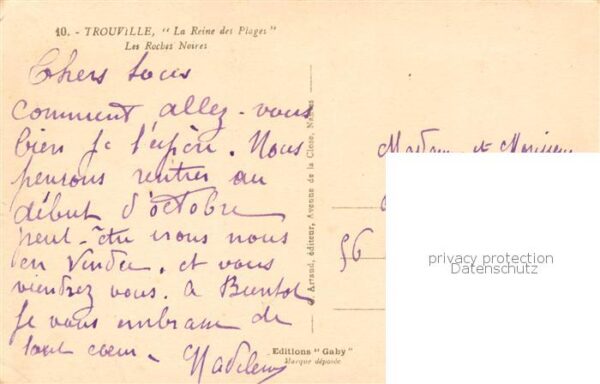 10. - TROUVILLE, "La Reine des Plages"
Les Roches Noires
Chers tous
comment allez-vous
bien je l'espère. Nous
pensons rentrer au
début d'octobre
peut-être irons nous
en Vendée, et vous
viendrez vous. a Bientôt
je vous embrasse de
tout cœur.
Madame et Monsieur
56
G. Artaud, éditeur, Avenue de la Close, Nantes
Editions "Gaby"
Marque déposée
privacy protection
Datenschutz